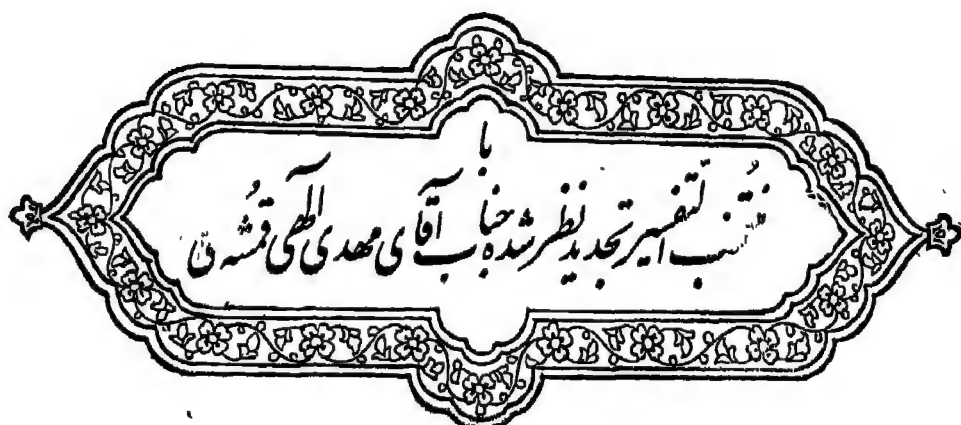 با
منتخب التفسیر تجدید نظر شده جناب آقای مهدی الهی قمشه‌ئی